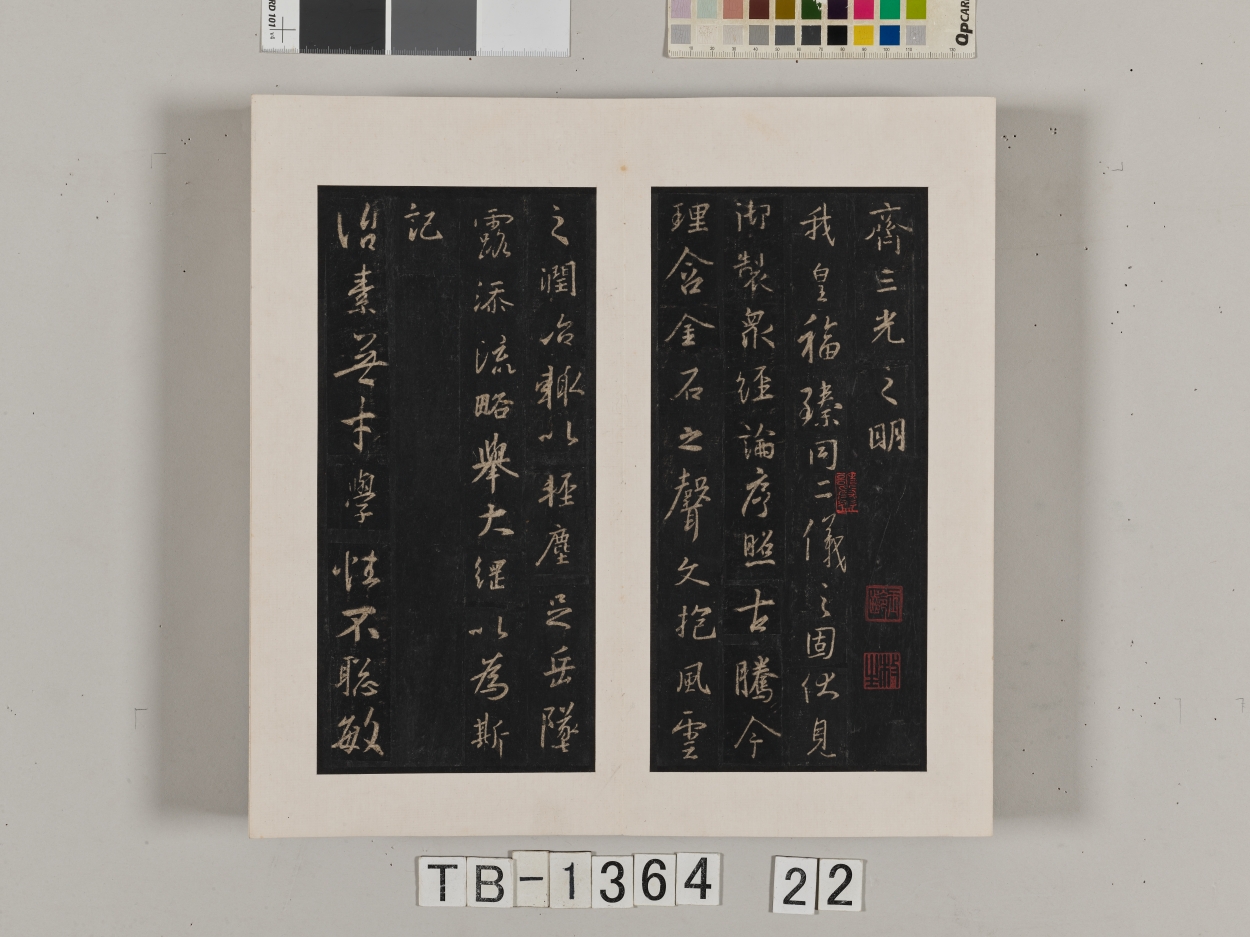 齊三光之明
我皇福臻同二儀之固伏見
御製衆經論序照古騰今
理含金石之聲文抱風雲
之潤治輙以輕塵足岳墜
露添流略舉大綱以為斯
記
治素無才學性不聰敏
TB-1364 22